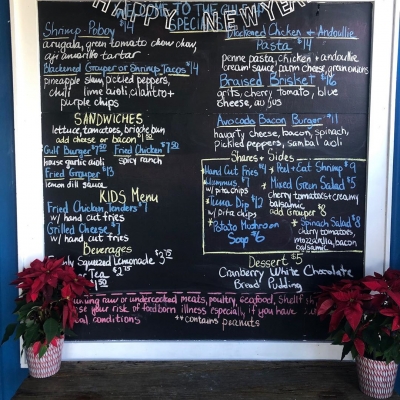 HAPPY NEW YEAR
WELCOME TO THE
SPECIALS
Shrimp Poboy $14
arugala, green tomato chow chow,
aji amarillo tartar
Blackened Grouper or Shrimp Tacos $14
pineapple slaw, pickled peppers,
chili lime aioli, cilantro +
purple chips
SANDWICHES
lettuce, tomatoes, brioche bun
add cheese or bacon $1
Gulf Burger $7.50 Fried Chicken $7.50
house garlic aioli spicy ranch
Fried Grouper $13
lemon dill sauce
KIDS Menu
Fried Chicken Tenders $7
w/ hand cut fries
Grilled Cheese $7
w/ hand cut fries
Beverages
Squeezed Lemonade $3.75
Tea $2.75
$1.50
Blackened Chicken + Andouille
Pasta $14
penne pasta, chicken + andouille
cream sauce, parm cheese, green onions
Braised Brisket $16
grits, cherry tomato, blue
cheese, au jus
Avocado Bacon Burger $11
havarty cheese, bacon, spinach,
pickled peppers, sambal aoli
Shares + Sides
Hand Cut Fries $4
Hummus $7
w/ pita chips
Tuna Dip $12
w/ pita chips
Potato Mushroom
Soup $6
Peel + Eat Shrimp $9
Mixed Green Salad $5
cherry tomatoes + creamy
balsamic
add Grouper $8
Spinach Salad $8
cherry tomatoes,
mozzarella, bacon
balsamic
Dessert $5
Cranberry White Chocolate
Bread Pudding
raw or undercooked meats, poultry, seafood, shellfish
your risk of foodborn illness especially, if you have
conditions **contains peanuts